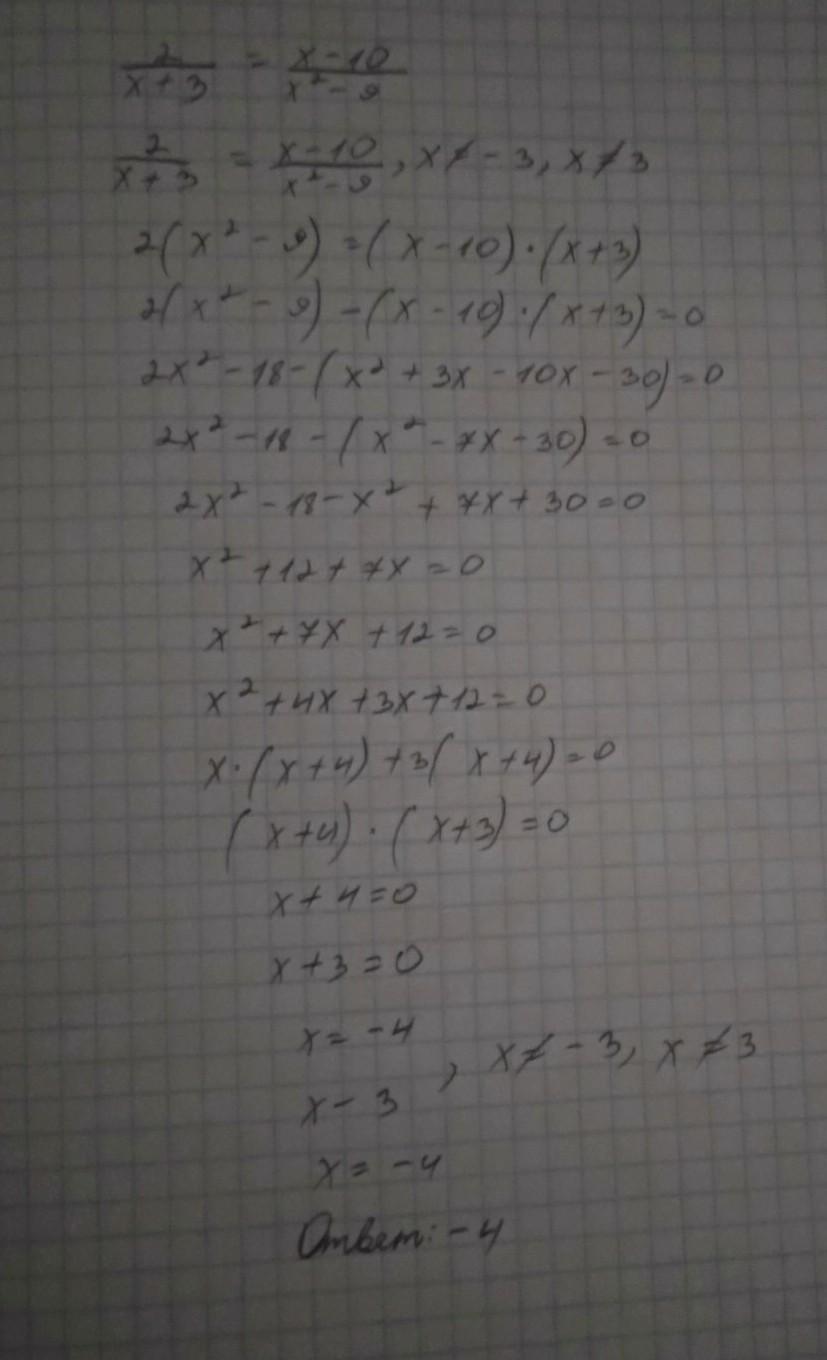 2/(x+3) = (x-10)/(x²-9)
2/(x+3) = (x-10)/(x²-9), x≠-3, x≠3
2(x²-9)=(x-10)·(x+3)
2(x²-9)-(x-10)·(x+3)=0
2x²-18-(x²+3x-10x-30)=0
2x²-18-(x²-7x-30)=0
2x²-18-x²+7x+30=0
x²+12+7x=0
x²+7x+12=0
x²+4x+3x+12=0
x·(x+4)+3(x+4)=0
(x+4)·(x+3)=0
x+4=0
x+3=0
x=-4
x-3
, x≠-3, x≠3
x=-4
Ответ: -4